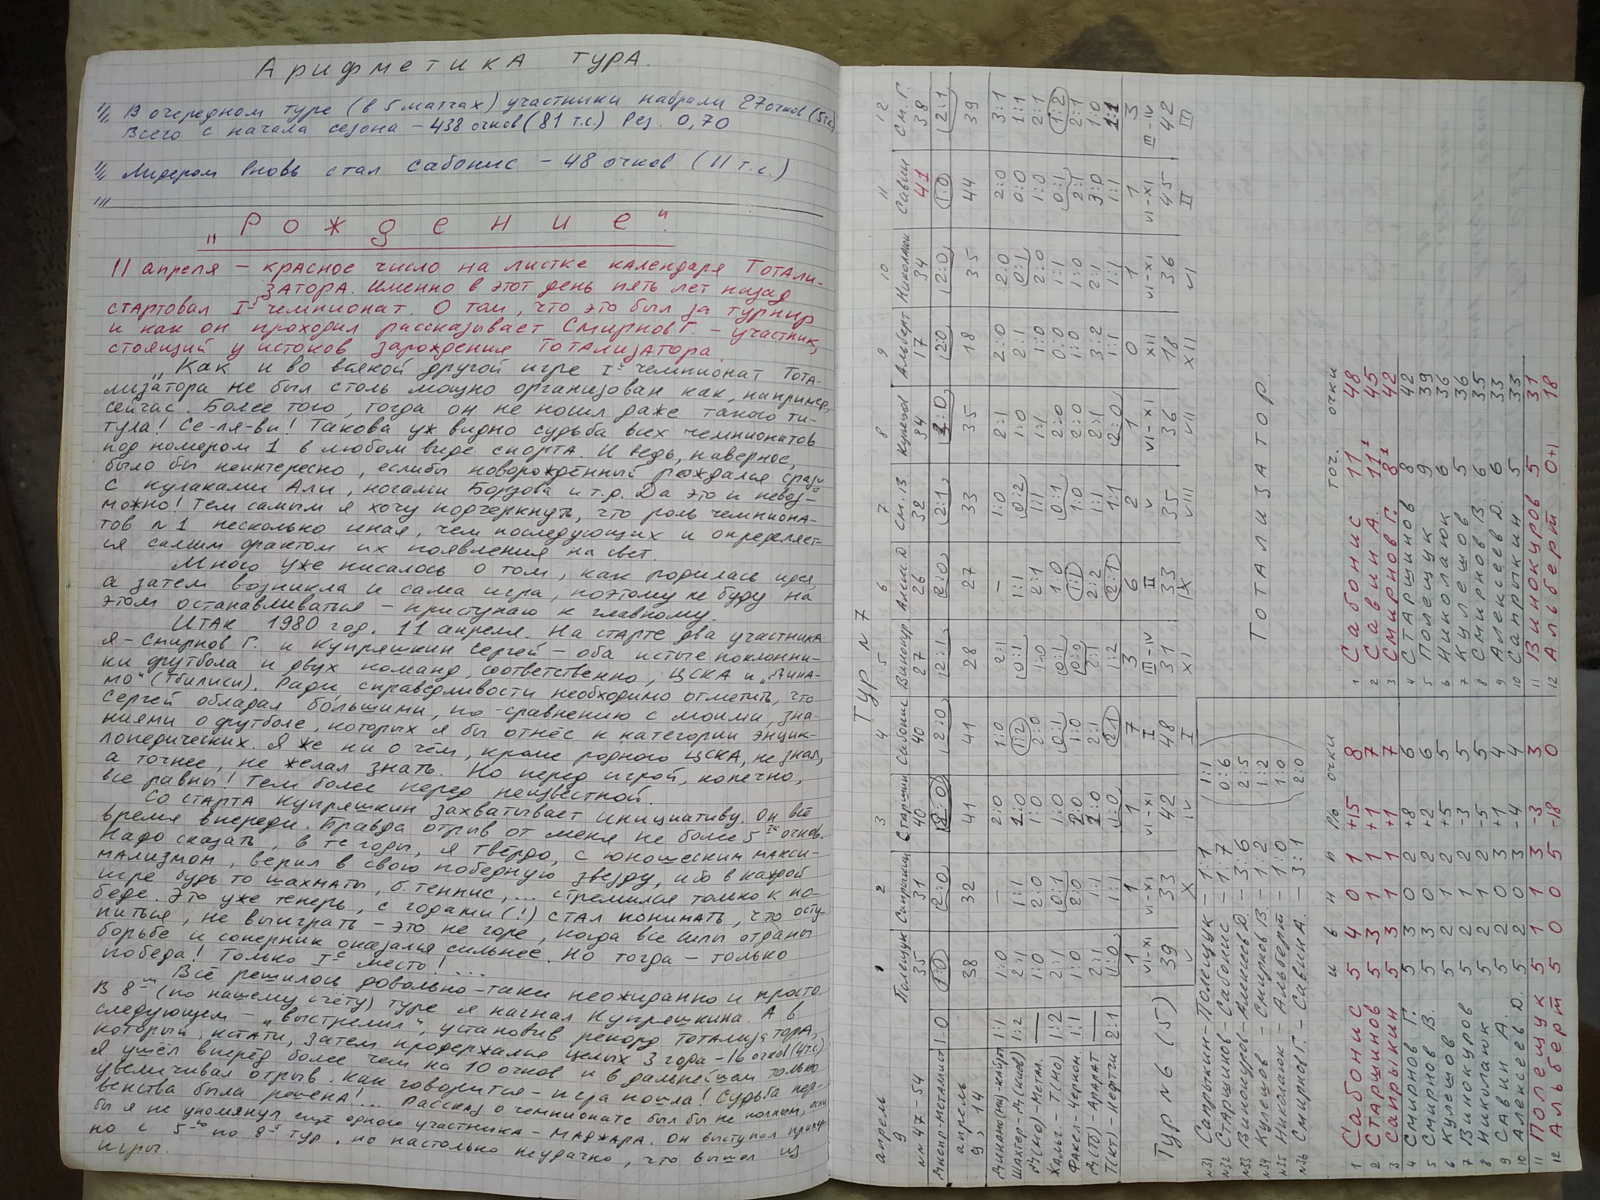 Арифметика тура.
1/ В очередном туре (в 5 матчах) участники набрали 27 очков (5 т.с.)
Всего с начала сезона – 438 очков (81 т.с.) Рез. 0,70
11/ Лидером вновь стал Сабонис – 48 очков (11 т.с.)
111
„Рождение".
11 апреля – красное число на листке календаря Тотали-
затора. Именно в этот день пять лет назад
стартовал Iй чемпионат. О том, что это был за турнир
и как он проходил рассказывает Смирнов Г. – участник,
стоящий у истоков зарождения Тотализатора.
„Как и во всякой другой игре Iй чемпионат Тота-
лизатора не был столь мощно организован как, например,
сейчас. Более того, тогда он не носил даже такого ти-
тула! Се-ля-ви! Такова уж видно судьба всех чемпионатов
под номером 1 в любом виде спорта. И ведь, наверное,
было бы неинтересно, еслибы новорождённый рождался сразу
с кулаками Али, ногами Борзова и т.д. Да это и невоз-
можно! Тем самым я хочу подчеркнуть, что роль чемпиона-
тов №1 несколько иная, чем последующих и определяет-
ся самим фактом их появления на свет.
Много уже писалось о том, как родилась идея,
а затем возникла и сама игра, поэтому не буду на
этом останавливаться – приступаю к главному.
Итак 1980 год. 11 апреля. На старте два участника
я – Смирнов Г. и Купряшкин Сергей – оба истые поклонни-
ки футбола и двух команд, соответственно, ЦСКА и „Дина-
мо" (Тбилиси). Ради справедливости необходимо отметить, что
Сергей обладал большими, по-сравнению с моими, зна-
ниями о футболе, которых я бы отнёс к категории энцик-
лопедических. Я же ни о чём, кроме родного ЦСКА, не знал,
а точнее, не желал знать. Но перед игрой, конечно,
все равны! Тем более перед неизвестной.
Со старта Купряшкин захватывает инициативу. Он всё
время впереди. Правда отрыв от меня не более 5ти очков.
Надо сказать, в те годы, я твёрдо, с юношеским макси-
мализмом, верил в свою победную звезду, ибо в каждой
игре будь то шахматы, б. теннис, ... стремился только к по-
беде. Это уже теперь, с годами (!) стал понимать, что осту-
питься, не выиграть – это не горе, когда все силы отданы
борьбе и соперник оказался сильнее. Но тогда – только
победа! Только Iе место! .....
Всё решилось довольно-таки неожиданно и просто
В 8м (по нашему счёту) туре я нагнал Купряшкина. А в
следующем – „выстрелил", установив рекорд Тотализатора,
который, кстати, затем продержался целых 3 года – 16 очков (4 т.с.)
Я ушёл вперёд более чем на 10 очков и в дальнейшем только
увеличивал отрыв. Как говорится – игра пошла! Судьба пер-
венства была решена!... Рассказ о чемпионате был бы не полным, если
бы я не упомянул ещё одного участника – Маджара. Он выступал правда
но с 5го по 8й тур, но настолько неудачно, что вышел из
игры.
ТУР №7
апрель 1 2 3 4 5 6 7 8 9 10 11 12
9 Полещук Сапрыкин Старшин Сабонис Винокур Алекс. Д. См. В Кулешов Альберт Николаюк Савин См. Г.
мм 47–54 35 31 40 40 27 26 32 34 17 34 41 38
Днепр-Металлист 1:0 1:0 2:0 2:0 2:0 2:1 2:0 2:1 3:0 2:0 2:0 1:0 2:1
апрель 9, 14 38 32 41 41 28 27 33 35 18 35 44 39
Динамо(мн)-Кайрат 1:1 1:0 – 2:0 1:0 2:1 – 1:0 2:1 2:0 2:0 2:0 3:1
Шахтёр-Д(Киев) 1:2 2:1 1:1 1:0 1:2 0:1 1:1 0:2 1:0 2:1 0:1 0:0 1:1
Д(Мо)-Метал. – 1:0 2:0 1:0 2:0 1:0 2:1 1:1 1:1 1:0 2:0 1:0 2:1
Жальг.-Т(Мо) 1:2 2:1 0:1 1:0 0:1 0:1 1:0 0:1 2:0 0:0 1:1 0:1 1:2
Факел-Черном. 1:1 1:0 2:0 2:0 1:0 0:0 1:1 1:0 2:0 1:0 1:0 2:1 2:1
Д(Тб)-Арарат – 2:1 1:1 2:0 2:1 2:1 2:2 1:1 2:1 3:2 2:1 3:0 1:0
Т(Кт)-Нефтчи 2:1 1:0 1:1 1:0 2:1 1:2 2:1 1:1 2:0 1:1 1:1 1:1 1:1
1 1 1 7 3 6 2 1 0 1 1 3
VI–XI VI–XI VI–XI I III–IV II V VI–XI XII VI–XI VI–XI III–IV
39 33 42 48 31 33 35 36 18 36 45 42
V X IV I XI IX VIII VII XII VI II III
Тур №6 (5)
№31 Сапрыкин – Полещук – 1:1 1:1
№32 Старшинов – Сабонис – 1:7 (0:6)
№33 Винокуров – Алексеев Д – 3:6 2:5
№34 Кулешов – Смирнов В. – 1:2 1:2
№35 Николаюк – Альберт – 1:0 1:0
№36 Смирнов Г. – Савин А. – 3:1 2:0
и в н п р/б очки
1 Сабонис 5 4 0 1 +15 8
2 Старшинов 5 3 1 1 +1 7
3 Сапрыкин 5 3 1 1 +1 7
4 Смирнов Г. 5 3 0 2 +8 6
5 Смирнов В. 5 3 0 2 +2 6
6 Кулешов 5 2 1 2 +5 5
7 Винокуров 5 2 1 2 -3 5
8 Николаюк 5 2 1 2 -5 5
9 Савин А. 5 2 0 3 +1 4
10 Алексеев Д. 5 2 0 3 -4 4
11 Полещук 5 1 1 3 -3 3
12 Альберт 5 0 0 5 -18 0
ТОТАЛИЗАТОР
точ. очки
1 Сабонис 11 48
2 Савин А. 11¹ 45
3 Смирнов Г. 8² 42
4 Старшинов 8 42
5 Полещук 9 39
6 Николаюк 6 36
7 Кулешов 5 36
8 Смирнов В. 6 35
9 Алексеев Д. 6 33
10 Сапрыкин 5 33
11 Винокуров 5 31
12 Альберт 0+1 18